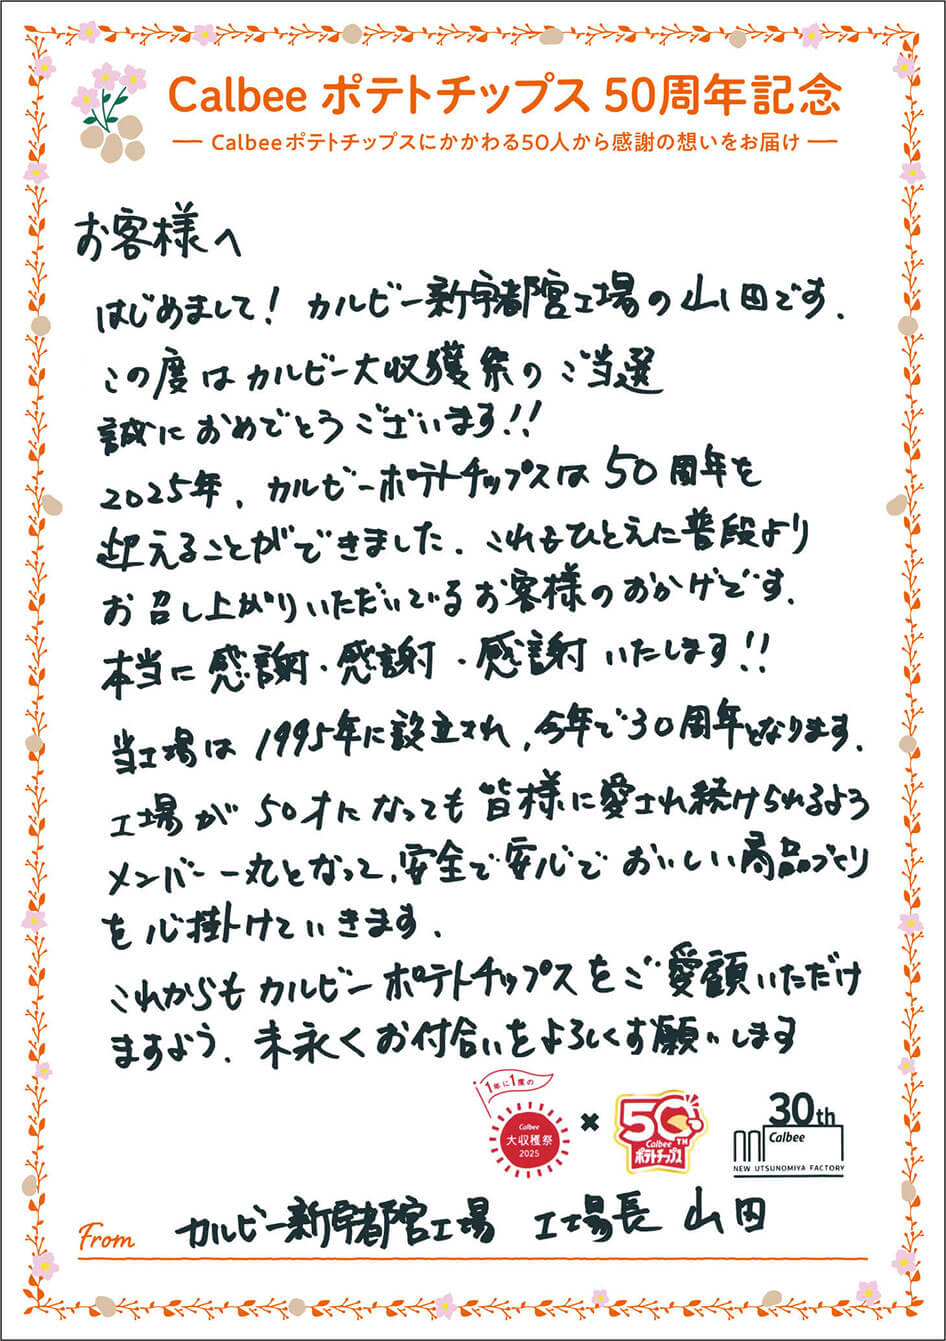 Calbee ポテトチップス 50周年記念
Calbeeポテトチップスにかかわる50人から感謝の想いをお届け
お客様へ
はじめまして！ カルビー新宇都宮工場の山田です.
この度はカルビー大収獲祭のご当選
誠におめでとうございます!!
2025年、カルビーポテトチップスは50周年を
迎えることができました. これもひとえに普段より
お召し上がりいただいてるお客様のおかげです.
本当に感謝・感謝・感謝いたします!!
当工場は1995年に設立され、今年で30周年となります.
工場が50才になっても皆様に愛され続けられるよう
メンバー一丸となって、安全で安心でおいしい商品づくり
を心掛けていきます.
これからもカルビーポテトチップスをご愛顧いただけ
ますよう. 末永くお付合いをよろしくお願いします
1年に1度の
Calbee
大収穫祭
2025
×
50TH
Calbee
ポテトチップス
30th
Calbee
NEW UTSUNOMIYA FACTORY
From カルビー新宇都宮工場 工場長 山田